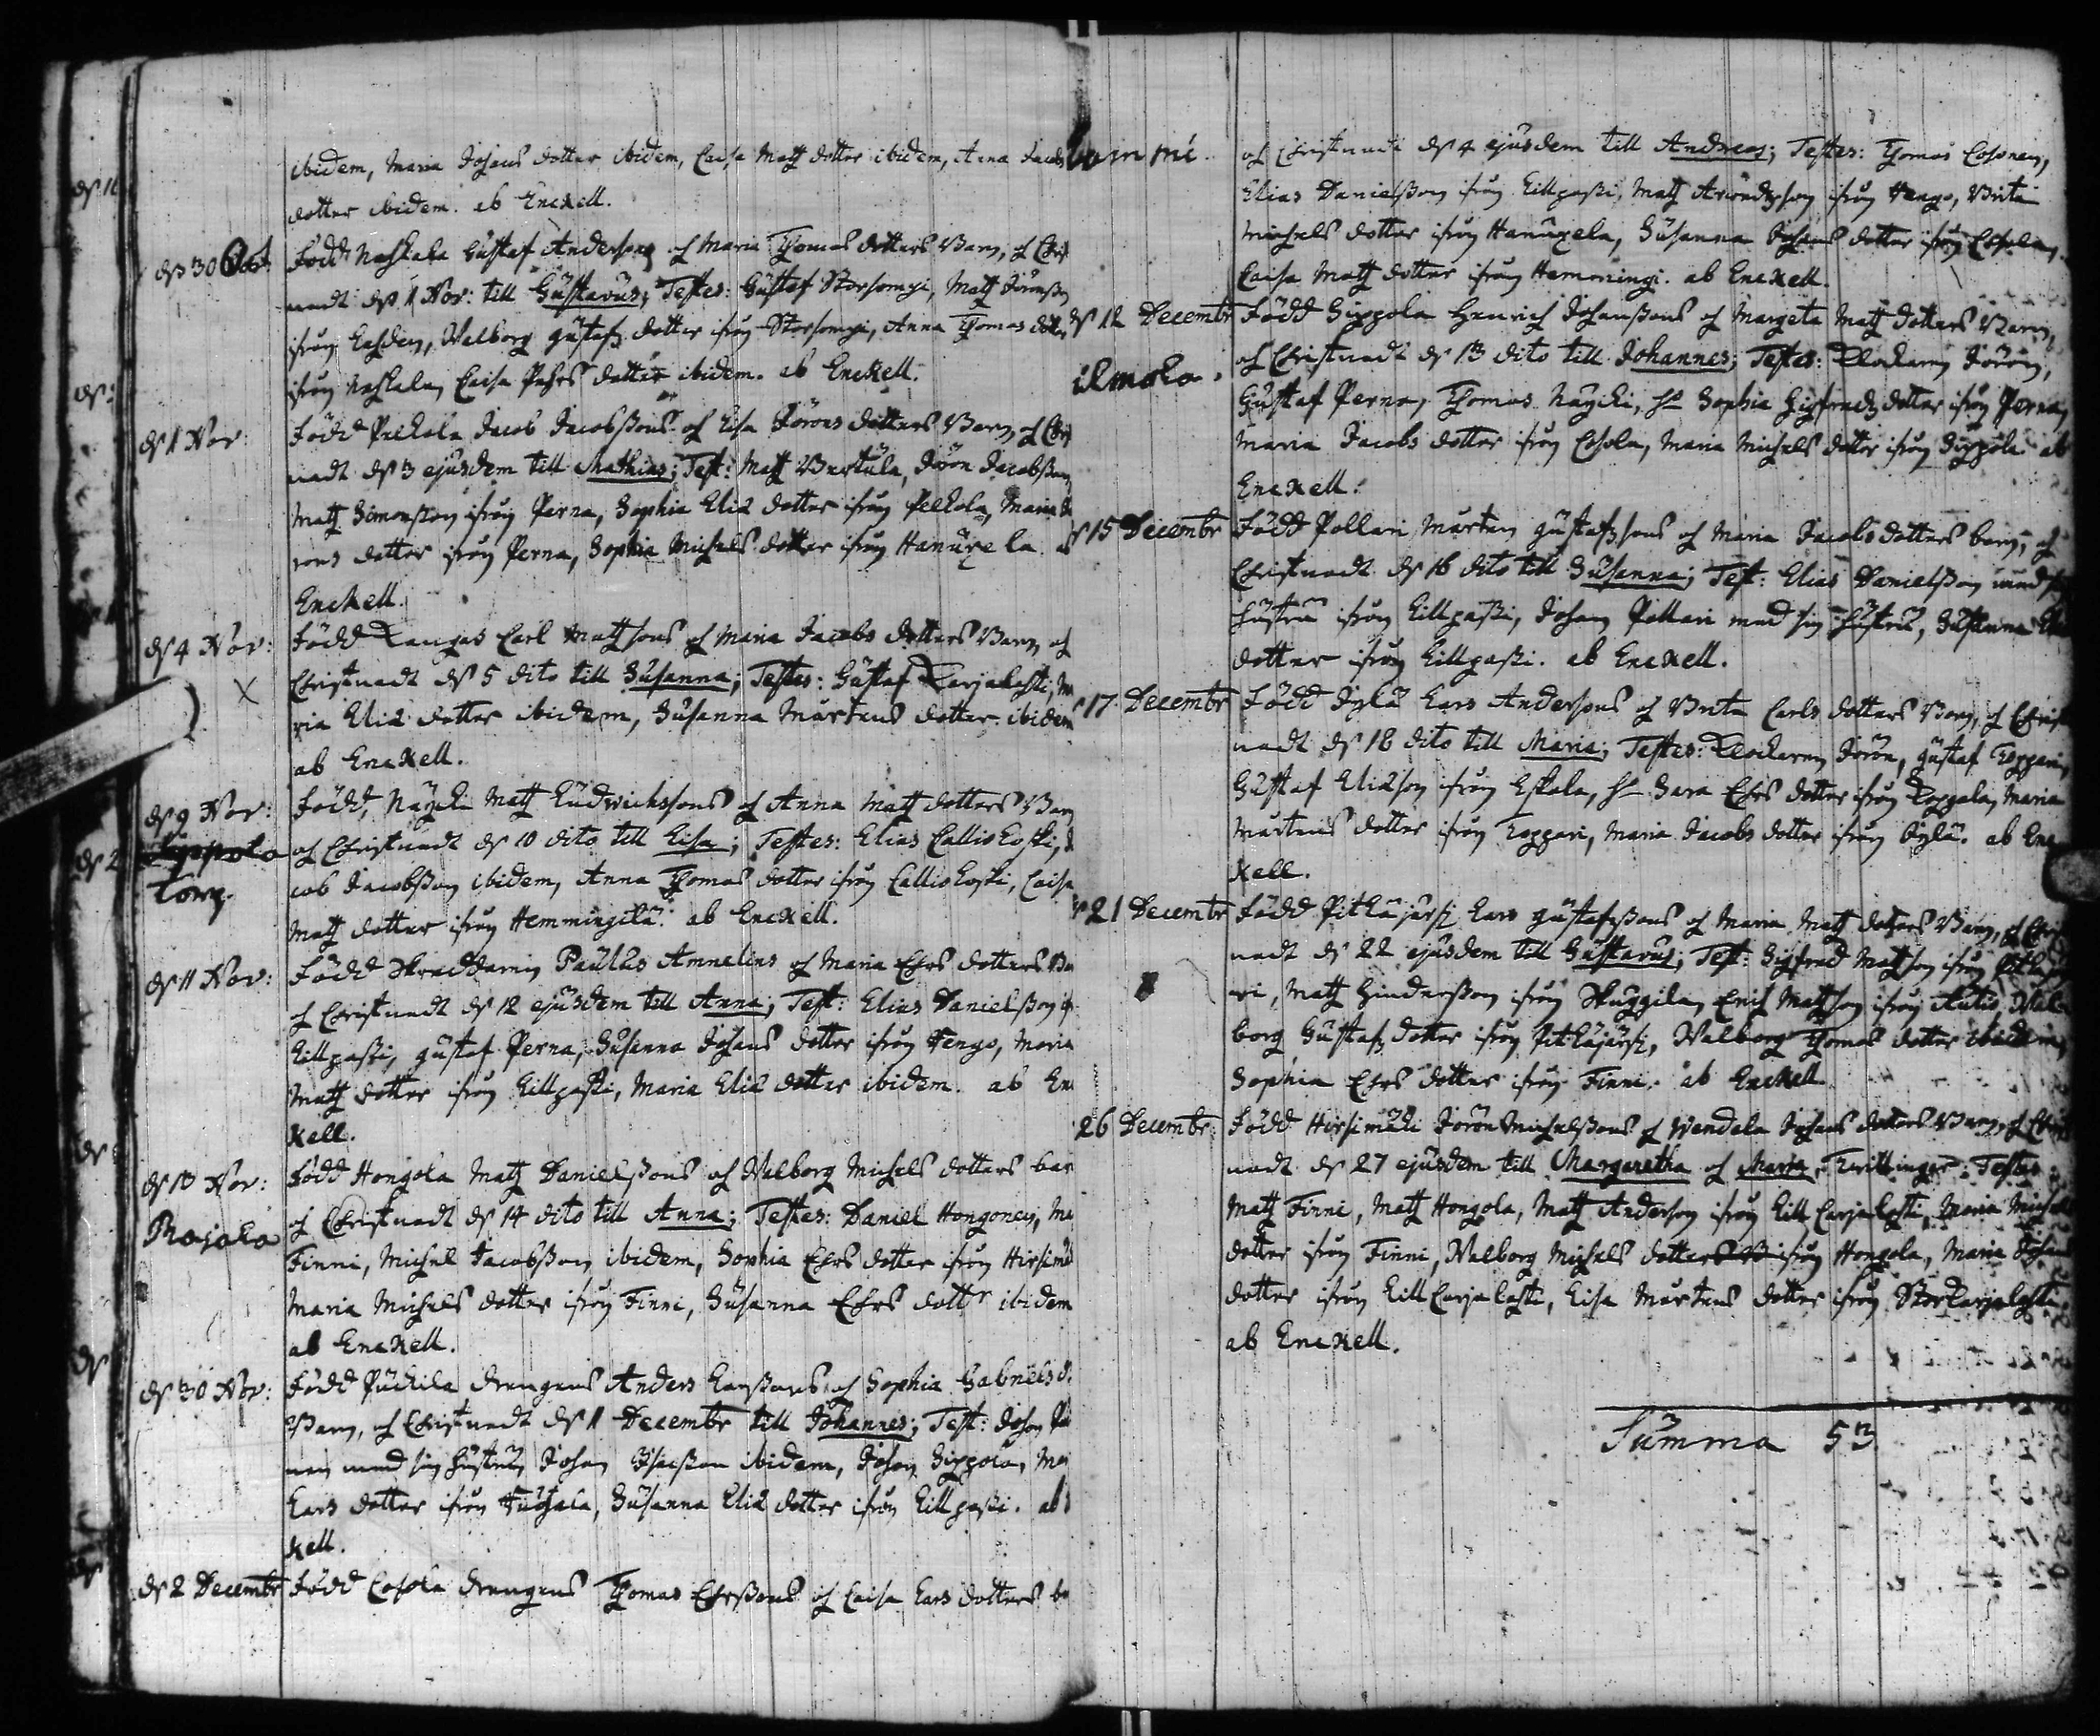 ibidem, Maria Johans dotter ibidem, Caisa Matz dotter ibidem, Anna Jacobs
dotter ibidem. ab Enckell.
ds 30 Oct. Född Gustaf Andersons och Maria Thomas dotters Barn, och Christ
nadt ds 1 Nov: till Gustavus; Testes: Gustaf Storsompi, Matz
ifrån, Walborg Gustafs dotter ifrån Storsompi, Anna Thomas dotter
ifrån, Caisa Pehrs dotter ibidem. ab Enckell.
ds 1 Nov: Född Pelkola Jacob Jacobssons och Lisa Jörens dotters Barn och Christ
nadt ds 3 ejusdem till Mathias; Test: Matz Burtula, Jören Jacobsson,
Matz Simonsson ifrån Perna, Sophia Elis dotter ifrån Pelkola, Maria
rens dotter ifrån Perna, Sophia Michels dotter ifrån Hanukela. ab
Enckell.
ds 4 Nov: Född Kangas Carl Matzsons och Maria Jacobs dotters Barn och
Christnadt ds 5 dito till Susanna; Testes: Gustaf Karjalasti, Ma
ria Elis dotter ibidem, Susanna Mårtens dotter ibidem
ab Enckell.
ds 9 Nov: Född, Näycki Matz Ludwichssons och Anna Matz dotters Barn
torp. och Christnadt ds 10 dito till Lisa; Testes: Elias Calliokoski, Ja
cob Jacobsson ibidem, Anna Thomas dotter ifrån Calliokoski, Caisa
Matz dotter ifrån Hemmingilä. ab Enckell.
ds 11 Nov: Född Skraddarn Paulus Amnelius och Maria Ehrs dotters Ba
och Christnadt ds 12 ejusdem till Anna; Test: Elias Danielsson if
Lillpassi, Gustaf Perna, Susanna Johans dotter ifrån Hengo, Maria
Matz dotter ifrån Lillpassi, Maria Elis dotter ibidem. ab En
kell.
ds 13 Nov: Född Hongola Matz Danielssons och Walborg Michels dotters bar
Rajala och Christnadt ds 14 dito till Anna; Testes: Daniel Hongonen, Ma
Finni, Michel Jacobsson ibidem, Sophia Ehrs dotter ifrån Hirsimä
Maria Michels dotter ifrån Finni, Susanna Ehrs dottr ibidem
ab Enckell.
ds 30 Nov: Född Puckila drengens Anders Larssons och Sophia Gabriels d.
Barn, och Christnadt ds 1 Decembr till Johannes; Test: Johan
nen med sin hustru, Johan ibidem, Johan Sippola, Ma
Lars dotter ifrån, Susanna Elis dotter ifrån Lillpassi. ab
kell.
ds 2 Decembr Född Cosola drengens Thomas Ehrssons och Caisa Lars dotters ba
och Christnadt ds 4 ejusdem till Andreas; Testes: Thomas Cosonen,
Elias Danielsson ifrån Lillpassi, Matz ifrån Hengo, Brita
Michels dotter ifrån Hanukela, Susanna Johans dotter ifrån Cosola,
Caisa Matz dotter ifrån Hemmingi. ab Enckell.
ds 12 Decembr Född Sippola Henrich Johanssons och Margeta Matz dotters Barn,
ilmola. och Christnadt ds 13 dito till Johannes; Testes: Klockarn Jören,
Gustaf Perna, Thomas Näycki, Ho Sophia Sigfredz dotter ifrån Perna,
Maria Jacobs dotter ifrån Cosola, Maria Michels dotter ifrån Sippola. ab
Enckell.
ds 15 Decembr Född Pollari Mårten Gustafssons och Maria Jacobs dotters barn, och
Christnadt ds 16 dito till Susanna; Test: Elias Danielsson med sin
hustru ifrån Lillpassi, Johan Pollari med sin hustru, Susanna Elis
dotter ifrån Lillpassi. ab Enckell.
17 Decembr Född Lars Andersons och Brita Carls dotters Barn, och Christ
nadt ds 18 dito till Maria; Testes: Klockarn Jören, Gustaf Toppari,
Gustaf Eliason ifrån Eskola, Ho Sara Ehrs dotter ifrån, Maria
Mårtens dotter ifrån Toppari, Maria Jacobs dotter ifrån. ab Enc
kell.
21 Decembr Född Pitkäjärfi Lars Gustafssons och Maria Matz dotters Barn, och Christ
nadt ds 22 ejusdem till Gustavus; Test: Sigfred Matzson ifrån Pitkäjär
vi, Matz Hindersson ifrån, Erich Matzson ifrån Autio, Wal
borg Gustafs dotter ifrån Pitkäjärfi, Walborg Thomas dotter ibidem,
Sophia Ehrs dotter ifrån Finni. ab Enckell
26 Decembr Född Hirsimäki Jören Michelssons och Wendela Johans dotters Barn, och Christ
nadt ds 27 ejusdem till Margaretha och Maria, Twillinger; Testes:
Matz Finni, Matz Hongola, Matz Anderson ifrån Lill Carjalasti, Maria Michels
dotter ifrån Finni, Walborg Michels dotter ifrån Hongola, Maria Johans
dotter ifrån Lill Carjalasti, Lisa Mårtens dotter ifrån Storkarjalasti.
ab Enckell.
Summa 53